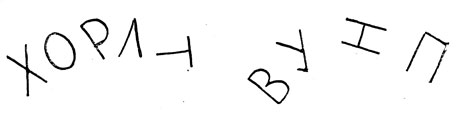 ХОРЛТ ВУНП